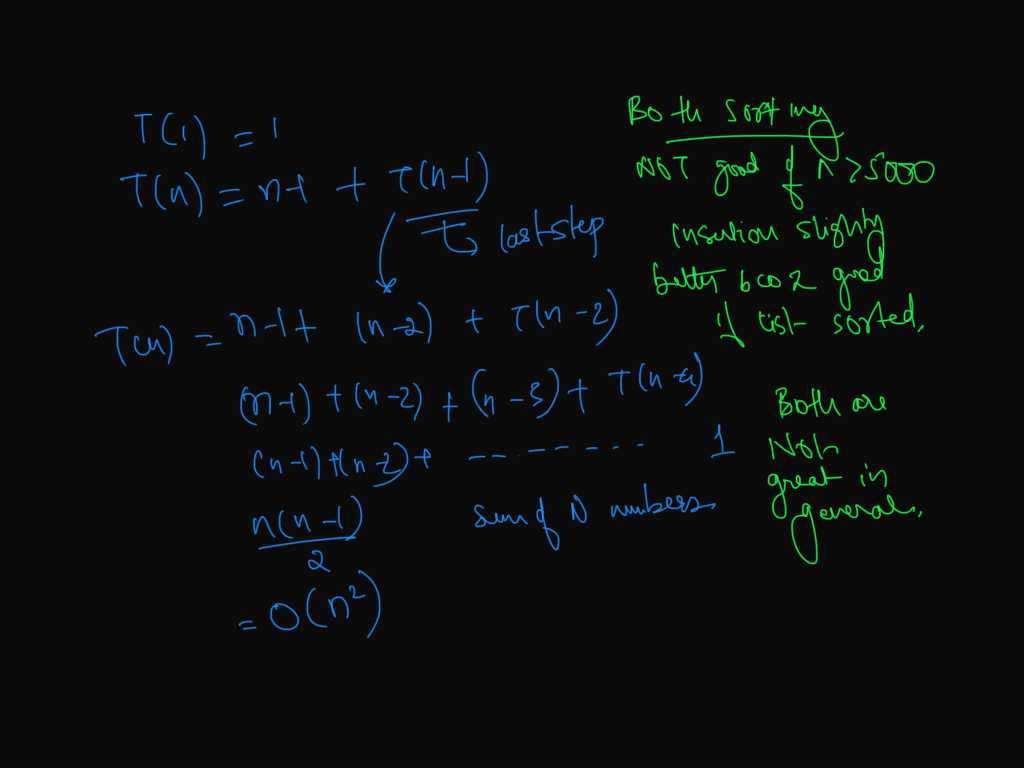 T(1) = 1
T(n) = n-1 + T(n-1)
last step
T(n) = n-1 + (n-2) + T(n-2)
(n-1) + (n-2) + (n-3) + T(n-4)
(n-1) + (n-2) + -- - - - - - - 1
n(n-1)
2
sum of N numbers.
= O(n²)
Both sorting
NOT good if n > 5000
insertion slighty
better bcoz good
if list sorted.
Both are
Not
great in
general.